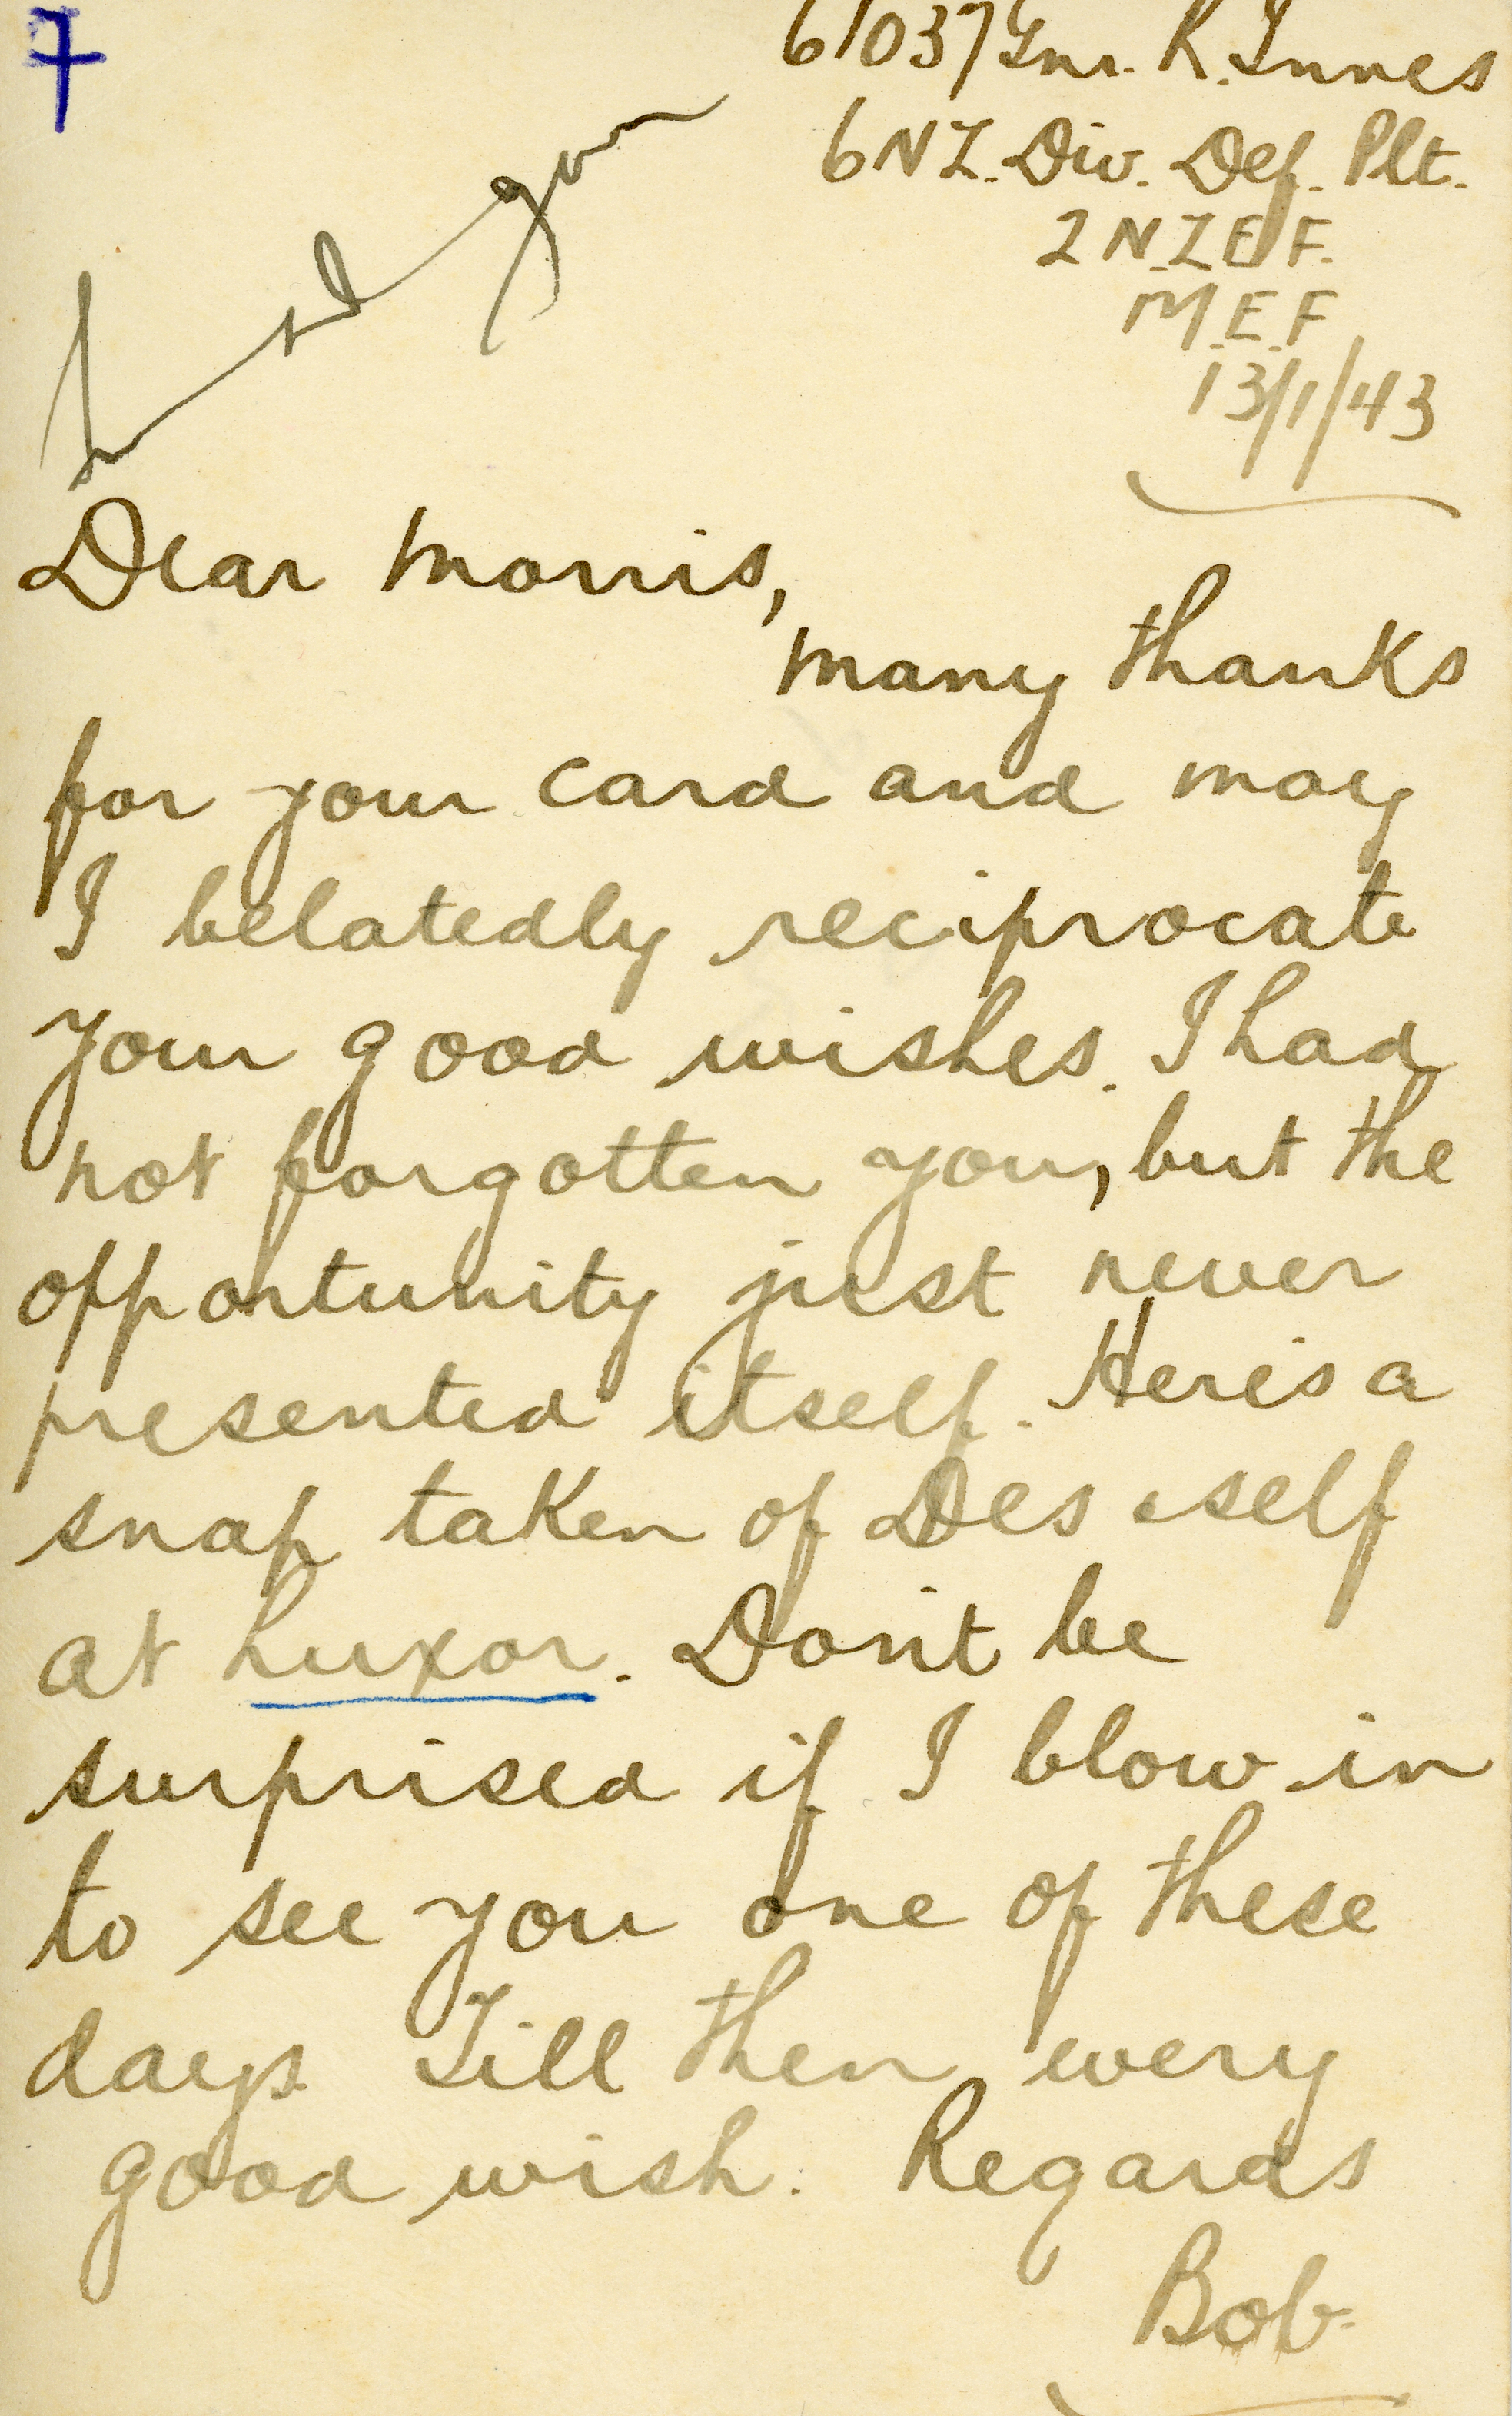 7
61037 Gnr. R. Innes
6 NZ. Div. Def. Plt.
2 N.Z.E.F.
M.E.F
13/1/43
Dear Morris,
many thanks
for your card and may
I belatedly reciprocate
your good wishes. I had
not forgotten you, but the
opportunity just never
presented itself. Here's a
snap taken of Des & self
at Luxor. Don't be
surprised if I blow in
to see you one of these
days. Till then every
good wish. Regards
Bob.